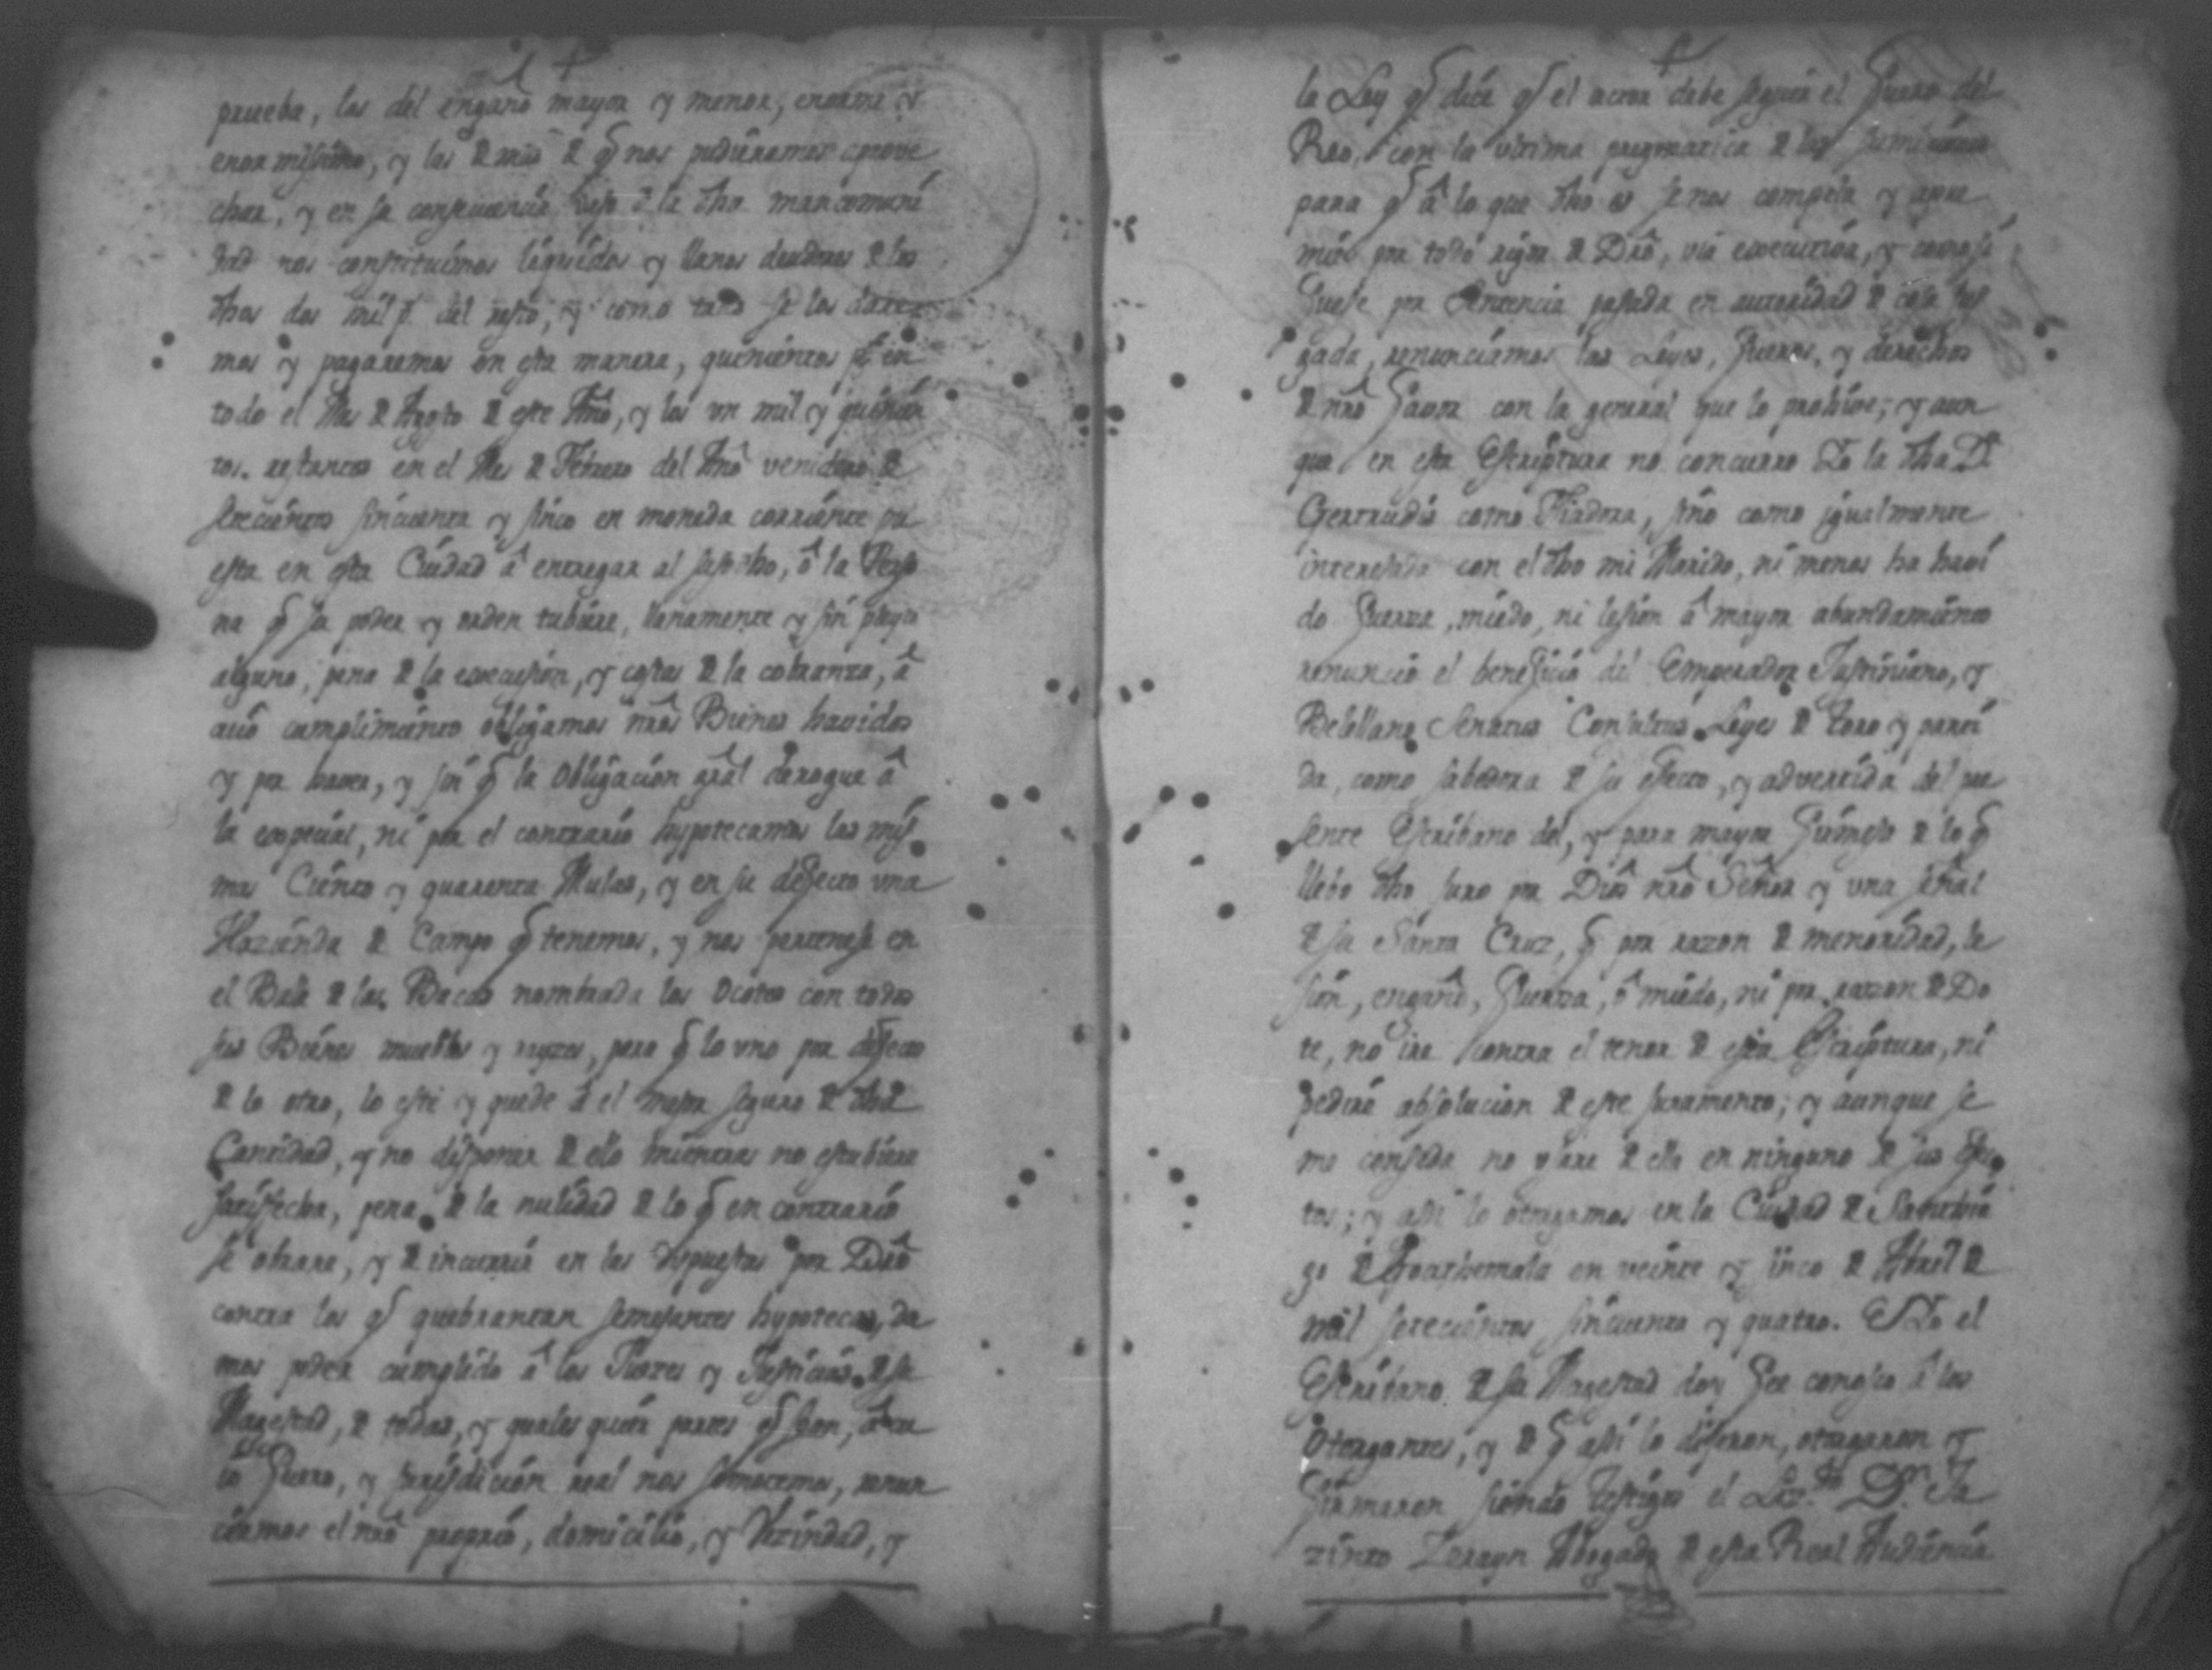 prueba, las del engaño mayor y menor, enorme y
enormissimo, y las de mas de q̃ nos pudieramos aprove
char, y en su consequencia bajo de la dha mancomuni
dad nos constituimos liquidos y llanos deudores de los
dhos dos mil ps. del resto, y como tales se los dare
mos y pagaremos en esta manera, quinientos ps en
todo el Mes de Agosto de este Año, y los un mil y quinien
tos restantes en el Mes de Febrero del Año venidero de
setecientos sincuenta y sinco en moneda corriente pu
esta en esta Ciudad â entregar al susodho, ô la Perso
na q̃ su poder y orden tubiere, llanamente y sin pleyto
alguno, pena de la execusion, y costas de la cobranza, â
cuio cumplimiento obligamos nrôs Bienes havidos
y por haver, y sin q̃ la obligacion gral derogue â
la especial, ni por el contrario hypotecamos las mis
mas Ciento y quarenta Mulas, y en su defecto una
Hazienda de Campo q̃ tenemos, y nos pertenese en
el Valle de las Bacas nombrada los Ocotes con todos
sus Bienes muebles y rayzes, para q̃ lo uno por defecto
de lo otro, lo esté y quede â el mejor seguro de dha
Cantidad, y no disponer de ello mientras no estubiere
satisfecha, pena de la nulidad de lo q̃ en contrario
se obrare, y de incurrir en las dispuestas por Drô
contra los q̃ quebrantan semejantes hypotecas, da
mos poder cumplido â los Juezes y Justicias de su
Magestad, de todas, y quales quier partes q̃ sean, â cu
io Fuero, y jurisdicion real nos sometemos, renun
ciamos el nrô proprio, domicilio, y Vezindad, y
la Ley q̃ dice q̃ el actor debe seguir el Fuero del
Reo, con la ultima pragmatica de las sumisiones
para q̃ â lo que dho es se nos compela y apre
mie por todo rigor de Drô, via executiva, y como si
fuese por sentencia pasada en autoridad de cosa jus
gada, renunciamos las Leyes, fueros, y derechos
de nrô favor con la general que lo prohive; y aun
que en esta Escriptura no concurro Yo la dha Da
Gertrudis como Fiadora, sino como igualmente
interesada con el dho mi Marido, ni menos ha havi
do fuerza, miedo, ni lesion â mayor abundamiento
renuncio el beneficio del Emperador Justiniano, y
Belellano Senatus Consultus Leyes de Toro y parti
da, como sabedora de su efecto, y advertida del pre
sente Escribano del, y para mayor firmesa de lo q̃
llebo dho juro por Dios nrô Señor y una señal
de su Santa Cruz, q̃ por razon de menoridad, le
sion, engaño, fuerza, ô miedo, ni por razon de Do
te, no ire contra el tenor de esta Escriptura, ni
pediré absolucion de este juramento; y aunque se
me conseda no usare de ella en ninguno de sus efec
tos; y assi lo otorgamos en la Ciudad de Santhia
go de Goathemala en veinte y sinco de Abril de
mil setecientos sincuenta y quatro. E Yo el
Escribano de su Magestad doy fee conosco â los
otorgantes, y de q̃ assi lo dijeron, otorgaron y
firmaron siendo testigos el Lizdo Dn Ja
zinto Abogado de esta Real Audiencia